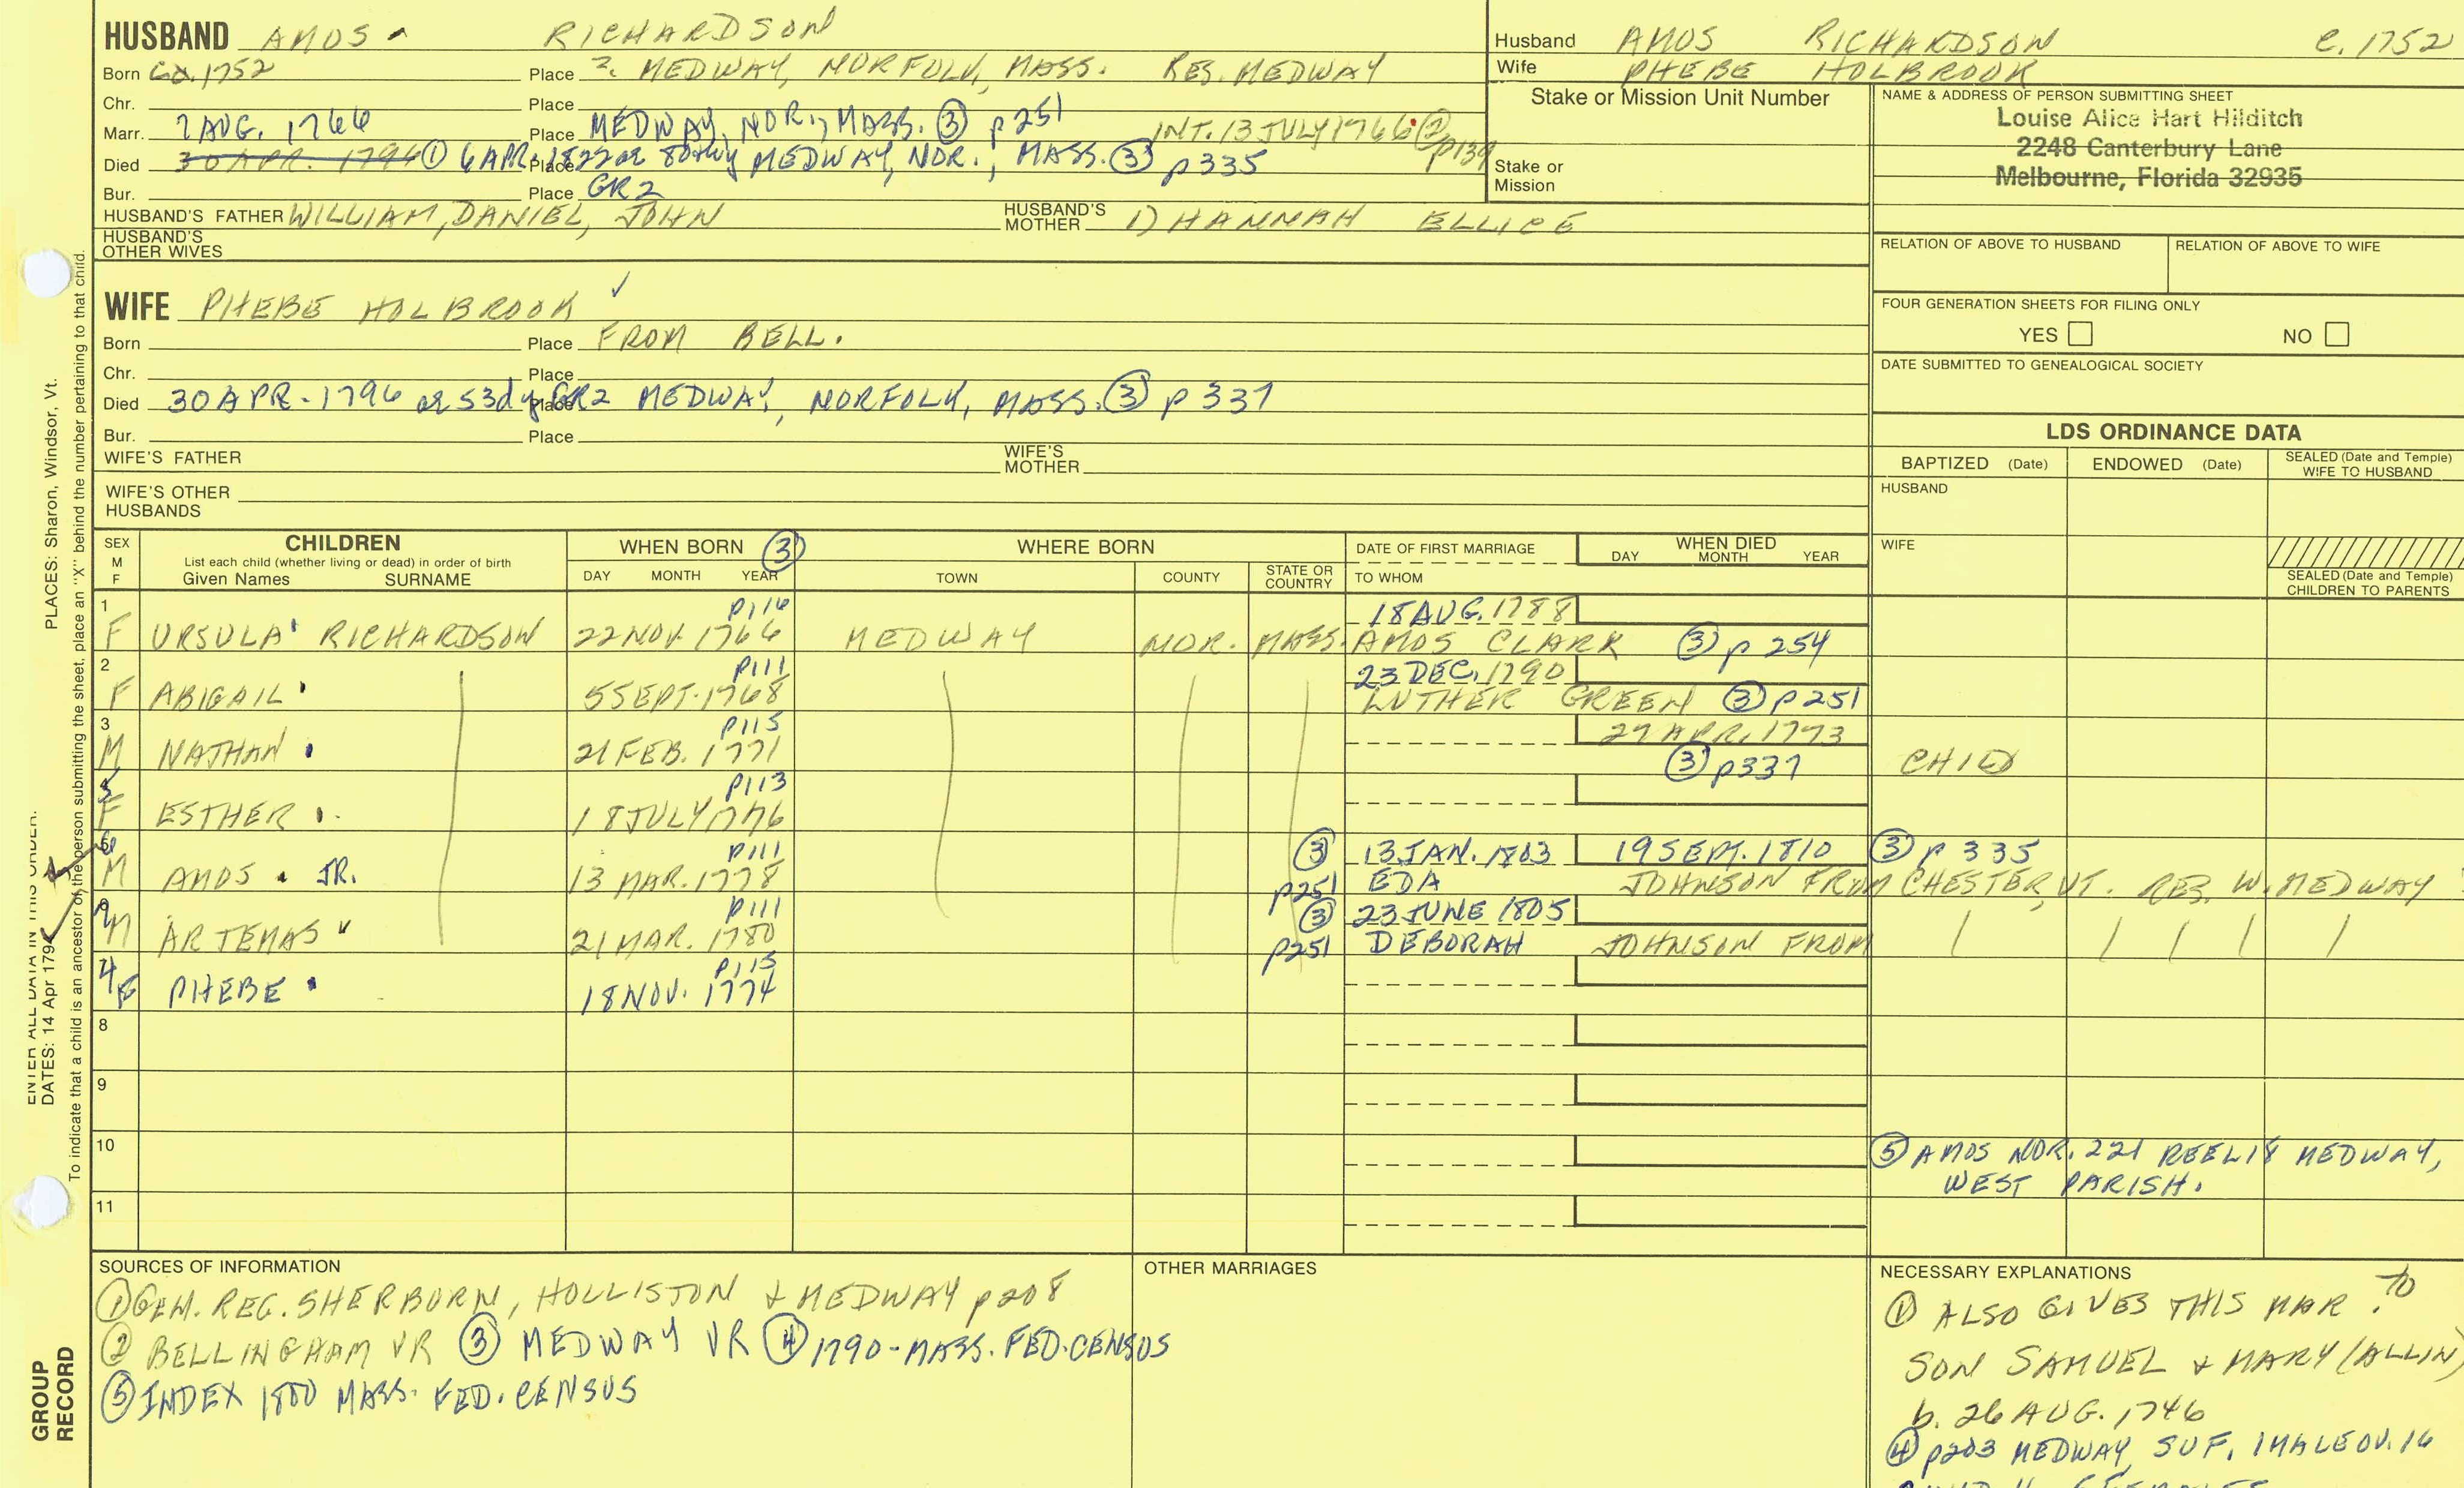 HUSBAND AMOS RICHARDSON
Born Ca. 1752 Place ?. MEDWAY, NORFOLK, MASS. RES. MEDWAY
Chr. Place
Marr. 7 AUG. 1766 Place MEDWAY, NOR., MASS. ③ p251 INT. 13 JULY 1766 ② p139
Died 30 APR. 1796 ① 6 APR. 1822 ae 80thy Place MEDWAY, NOR., MASS. ③ p335
Bur. Place GR2
HUSBAND'S FATHER WILLIAM, DANIEL, JOHN HUSBAND'S MOTHER 1) HANNAH ELLICE
HUSBAND'S OTHER WIVES
Husband AMOS RICHARDSON c. 1752
Wife PHEBE HOLBROOK
Stake or Mission Unit Number
Stake or Mission
NAME & ADDRESS OF PERSON SUBMITTING SHEET
Louise Alice Hart Hilditch
2248 Canterbury Lane
Melbourne, Florida 32935
RELATION OF ABOVE TO HUSBAND RELATION OF ABOVE TO WIFE
FOUR GENERATION SHEETS FOR FILING ONLY
YES NO
DATE SUBMITTED TO GENEALOGICAL SOCIETY
WIFE PHEBE HOLBROOK
Born Place FROM BELL.
Chr. Place
Died 30 APR. 1796 ae 53dy Place GR2 MEDWAY, NORFOLK, MASS. ③ p337
Bur. Place
WIFE'S FATHER WIFE'S MOTHER
WIFE'S OTHER HUSBANDS
LDS ORDINANCE DATA
BAPTIZED (Date) ENDOWED (Date) SEALED (Date and Temple) WIFE TO HUSBAND
HUSBAND
WIFE
SEALED (Date and Temple) CHILDREN TO PARENTS
SEX M F
CHILDREN
List each child (whether living or dead) in order of birth
Given Names SURNAME
WHEN BORN ③
DAY MONTH YEAR
WHERE BORN
TOWN COUNTY STATE OR COUNTRY
DATE OF FIRST MARRIAGE
TO WHOM
WHEN DIED
DAY MONTH YEAR
1 p116 18 AUG. 1788
F URSULA RICHARDSON 22 NOV. 1766 MEDWAY NOR. MASS. AMOS CLARK ③ p 254
2 p111 23 DEC. 1790
F ABIGAIL 5 SEPT. 1768 LUTHER GREEN ③ p251
3 p115 27 APR. 1773
M NATHAN 21 FEB. 1771 ③ p337 CHILD
5 p113
F ESTHER 18 JULY 1776
6 p111 ③ 13 JAN. 1803 19 SEPT. 1810 ③ p 335
M AMOS JR. 13 MAR. 1778 p251 EDA JOHNSON FROM CHESTER, VT. RES. W. MEDWAY
p111 ③ 23 JUNE 1805
M ARTEMAS 21 MAR. 1780 p251 DEBORAH JOHNSON FROM
4 p115
F PHEBE 18 NOV. 1774
8
9
10
11
⑤ AMOS NOR. 221 REEL 18 MEDWAY,
WEST PARISH.
SOURCES OF INFORMATION
① GEN. REG. SHERBORN, HOLLISTON & MEDWAY p208
② BELLINGHAM VR ③ MEDWAY VR ④ 1790 - MASS. FED. CENSUS
⑤ INDEX 1800 MASS. FED. CENSUS
OTHER MARRIAGES
NECESSARY EXPLANATIONS
① ALSO GIVES THIS MAR. TO
SON SAMUEL & MARY (ALLIN)
b. 26 AUG. 1746
④ p203 MEDWAY, SUF. 1 MALE OV. 16
PLACES: Sharon, Windsor, Vt.
ENTER ALL DATA IN THIS ORDER:
DATES: 14 Apr 179
To indicate that a child is an ancestor of the person submitting the sheet, place an "X" behind the number pertaining to that child.
GROUP RECORD